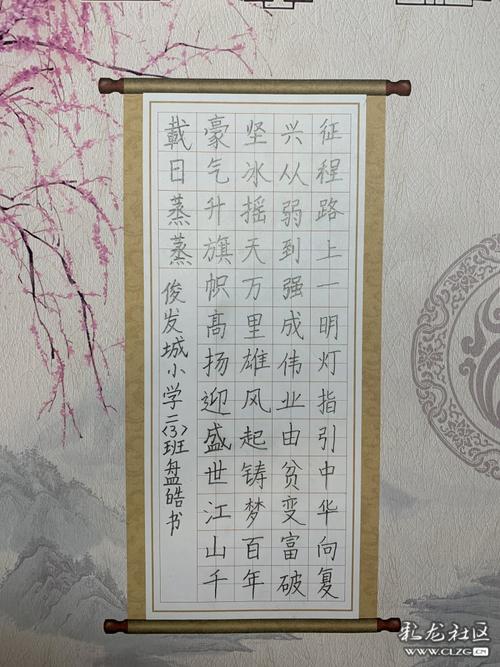 征程路上一明灯指引中华向复
兴从弱到强成伟业由贫变富破
坚冰摇天万里雄风起铸梦百年
豪气升旗帜高扬迎盛世江山千
载日蒸蒸
俊发城小学二〈3〉班盘皓书
彩龙社区
WWW.CLZG.CN